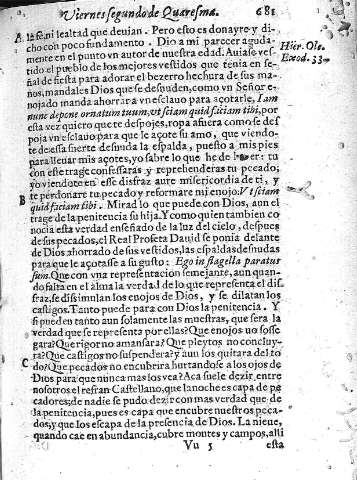 Viernes segundo de Quaresma. 681
A la fe ni lealtad que deuian. Pero esto es donayre y di-
cho con poco fundamento. Dio a mi parecer aguda-
mente en el punto vn autor de nuestra edad. Auiase ves-
tido el pueblo de los mejores vestidos que tenia en se-
ñal de fiesta para adorar el bezerro hechura de sus ma-
nos, mandales Dios que se desnuden, como vn Señor e-
nojado manda ahorrar a vn esclauo para açotarle, Iam
nunc depone ornatum tuum, vt sciam quid faciam tibi, por
esta vez quiero que te despojes, ropa afuera como se des
poja vn esclauo para que le açote su amo, que viendo-
te de essa fuerte desnuda la espalda, puesto a mis pies
para lleuar mis açotes, yo sabre lo que he de hazer: tu
con esse trage confessaras y reprehenderas tu pecado,
yo viendote en esse disfraz aure misericordia de ti, y
te perdonare tu pecado y reformare mi enojo. Vt sciam
B quid faciam tibi. Mirad lo que puede con Dios, aun el
trage de la penitencia su hija. Y como quien tambien co
nocia esta verdad enseñado de la luz del cielo, despues
de sus pecados, el Real Profeta Dauid se ponia delante
de Dios ahorrado de sus vestidos, las espaldas desnudas
para que le açotasse a su gusto: Ego in flagella paratus
sum. Que con vna representacion semejante, aun quan-
do falta en el alma la verdad de lo que representa el dis-
fraz, se dissimulan los enojos de Dios, y se dilatan los
castigos. Tanto puede para con Dios la penitencia. Y
si pueden tanto aun solamente las muestras, que sera la
verdad que se representa por ellas? Que enojos no sosse
gara? Que rigor no amansara? Que pleytos no concluy-
ra? Que castigos no suspendera? y aun los quitara del to
C do? Que pecados no encubrira hurtandose a los ojos de
Dios para que nunca mas los vea? Aca suele dezir entre
nosotros el refran Castellano, que la noche es capa de pe
cadores; de nadie se pudo dezir con mas verdad que de
la penitencia, pues es capa que encubre nuestros peca-
dos, y que los escapa de la presencia de Dios. La nieue,
quando cae en abundancia, cubre montes y campos, alli
Vu 5 esta
Hier. Ole.
Exod. 33